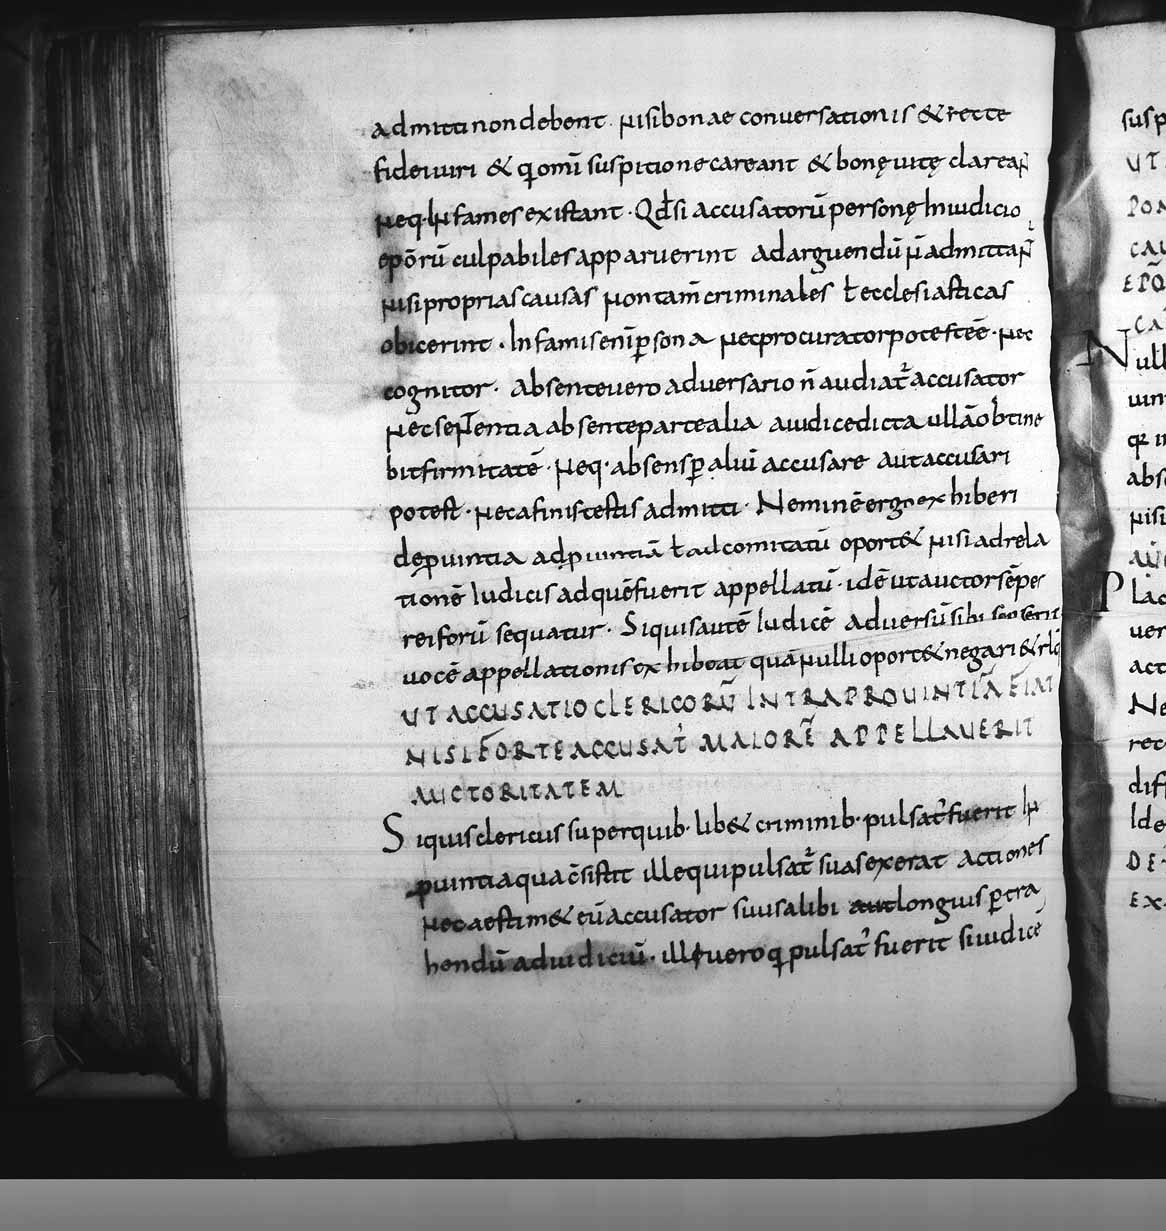 admitti non debent. nisi bonae conuersationis & recte
fidei uiri & q omī suspitione careant & bonę uitę clareaɴ̄
neq· infames existant · Qđ si accusatorū personę In iudicio
epōrū culpabiles apparuerint ad arguendū ñ admittaɴ̄t
nisi proprias causas non tam̄ criminales ł ecclesiasticas
obicerint · Infamis enī psona nec procurator potest eē · nec
cognitor · absente uero aduersario ñ audiat̄ accusator
nec senťentia absente parte alia a iudice dicta ullā obtine
bit firmitatē · neq· absens p aliū accusare aut accusari
potest · nec afinis testis admitti · Neminē ergo exhiberi
de puintia ad puintiā ł ad comitatū oport& nisi ad rela
tionē Iudicis ad quē fuerit appellatū · idē ut auctor sēper
rei forū sequatur · Si quis autē Iudicē aduersū sibi senserit
uocē appellationis exhibeat quā nulli oport& negari & rłq
UT ACCUSATIO CLERICORŪ INTRA PROUINTIĀ FIAT
NISI FORTE ACCUSAT̄ MAIORĒ APPELLAUERIT
AUCTORITATEM
Si quis clericus super quib· lib& criminib· pulsat̄ fuerit In
puintia qua c̄sistit ille qui pulsat̄ suas exerat actiones
nec aestim& eū accusator suus alibi aut longius ptra
hendū ad iudiciū · ille uero q pulsat̄ fuerit si iudicē
susp
UT
PON
CAU
EPO
CA
Null
uin
q in
abs
nisi
Plac
uer
act
Ne
rec
diff
Ide
DE
EX